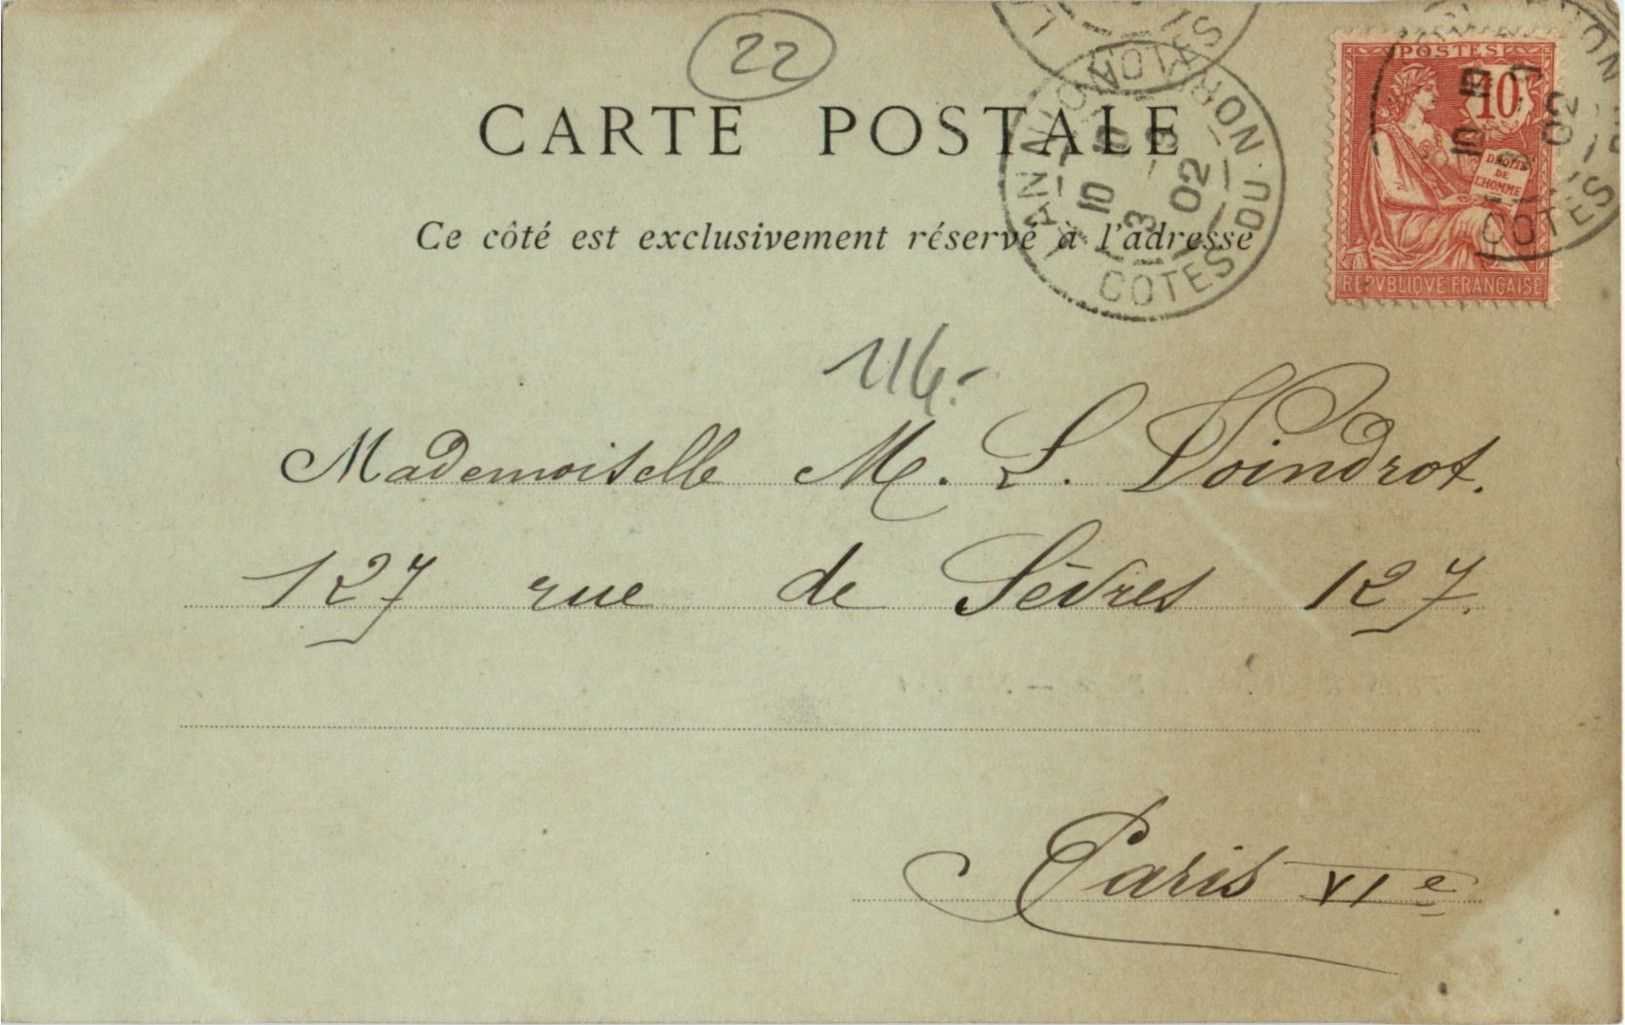 22
CARTE POSTALE
Ce côté est exclusivement réservé à l'adresse
LANNION
10 10
3 -3
02
COTES-DU-NORD
POSTES
10
DROITS
DE
L'HOMME
REPVBLIQVE FRANÇAISE
COTES
Mademoiselle M. L. Voindrot.
127 rue de Sèvres 127.
Paris VIe